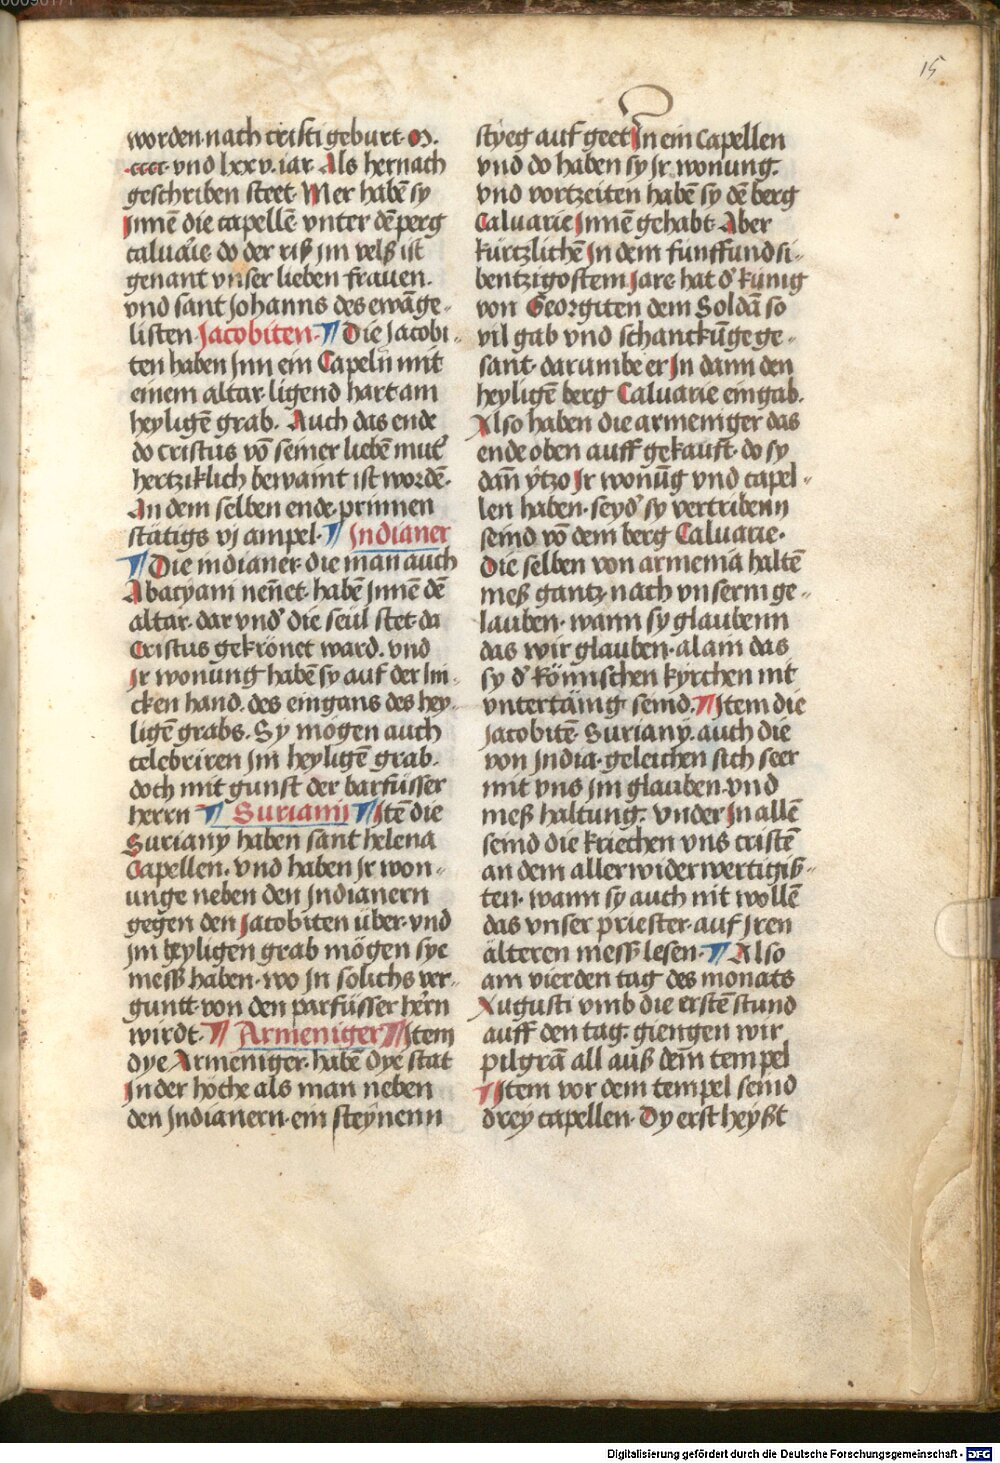 15
worden nach cristi geburt · M ·
· cccc · vnd lxxv · iar · Als hernach
geschriben steet · Mer habē sy
Innē die capellē vnter dē perg
caluarie do der riß im velß ist
genant vnser lieben frauen ·
vnd sant Johanns des ewāge-
listen · Jacobiten · ¶ Die Jacobi-
ten haben Inn ein Capeln mit
einem altar ligend hart am
heyligē grab · Auch das ende
do cristus vō seiner liebē mut̉
hertziklich bewaint ist wordē ·
An dem selben ende prinnen
stätigs vj ampel · ¶ Indianer
¶ Die indianer die man auch
Abatyani nēnet habē Innē dē
altar · dar vnd̉ die seül stet da
Cristus gekrönet ward · vnd
Ir wonung habē sy auf der lin-
cken hand · des eingans des hey-
ligē grabs · Sy mögen auch
celebriren Im heyligē grab ·
doch mit gunst der barfüsser
herrn ¶ Suriani ¶ Itē die
Suriany haben sant helena
Capellen · vnd haben Ir won-
unge neben den Indianern
gegen den Jacobiten über · vnd
Im heyligen grab mögen sye
mess haben · wo In solichs ver-
guntt von den parfüsser herrn
wirdt · ¶ Armeniger ¶ Item
dye Armeniger · habē dye stat
In der höche als man neben
den Indianern · ein steynenn
styeg auf geet In ein Capellen
vnd do haben sy Ir wonung ·
vnd vortzeiten habē sy dē berg
Caluarie Innē gehabt · Aber
kürtzlichē In dem funffundsi-
bentzigostem Jare hat d̉ künig
von Georgiten dem Soldā so
vil gab vnd schanckūge ge-
sant · darumbe er In dann den
heyligē berg Caluarie eingab ·
Also haben die armeniger das
ende oben auff gekaufft · do sy
dān ytzo Ir wonūg vnd capel-
len haben · seyd̉ sy vertribenn
seind vō dem berg Caluarie ·
Die selben von armenia haltē
meß gantz nach vnserm ge-
lauben · wann sy glaubenn
das wir glauben · alain das
sy d̉ Römischen kyrchen nit
vntertänig seind · ¶ Item die
Jacobitē · Suriany · auch die
von India · geleichen sich seer
mit vns im glauben · vnd
meß haltung · vnder In allē
seind die kriechen vns cristē
an dem aller widerwertigiß-
ten · wann sy auch nit wollē
das vnser priester auf Iren
älteren mess lesen · ¶ Also
am vierden tag des monats
Augusti vmb die erstē stund
auff den tag · giengen wir
pilgrā all auß dem tempel
¶ Item vor dem tempel seind
drey capellen · Dy erst heyßt
Digitalisierung gefördert durch die Deutsche Forschungsgemeinschaft - DFG